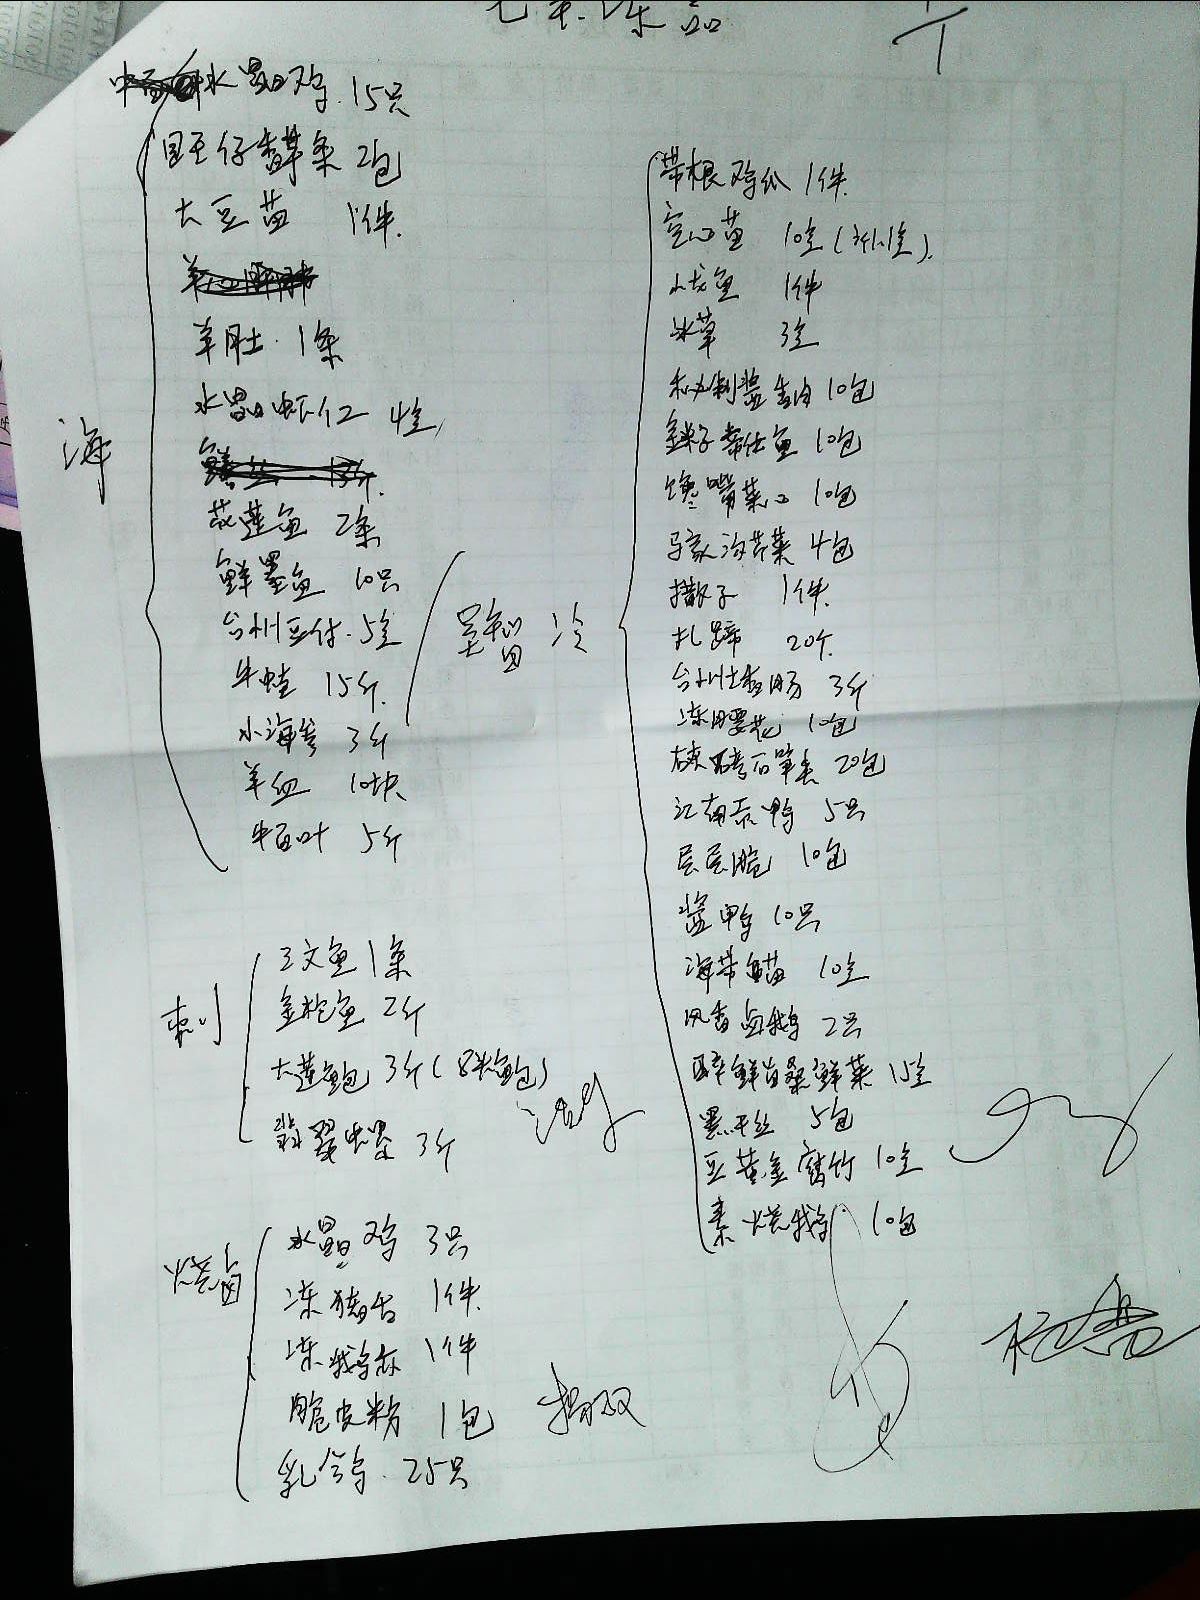 水晶鸡 15只
旺仔香草条 2包
大豆苗 1件
羊肚 1条
水晶虾仁 4盒
花莲鱼 2条
鲜墨鱼 10只
台州豆付 5盒
牛蛙 15斤
小海参 3斤
羊血 10块
牛百叶 5斤
海
三文鱼 1条
金枪鱼 2斤
大莲鲍 3斤(8头鲍)
翡翠螺 3斤
刺
水晶鸡 3只
冻猪舌 1件
冻鹅 1件
脆皮粉 1包
乳鸽 25只
烧卤
带根鸡爪 1件
空心苗 10盒
小龙鱼 1件
冰草 3盒
秘制酱牛肉 10包
金粟子希仕鱼 10包
馋嘴菜心 10包
马家沟芹菜 4包
撒子 1件
扎蹄 20个
台州土香肠 3斤
冻腰花 10包
石笋 20包
江南 鸭 5只
层层脆 10包
酱鸭 10只
海带苗 10盒
风香卤鹅 2只
醉鲜 鲜菜 15盒
黑干丝 5包
豆黄金腐竹 10盒
素烧鹅 10包
冷